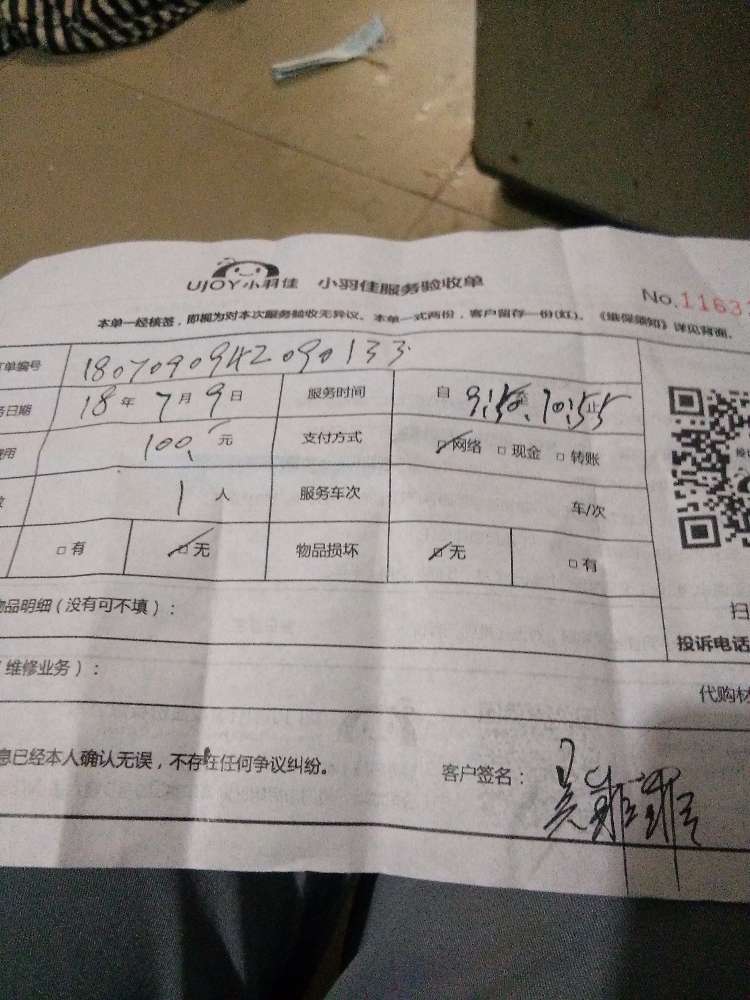 UJOY小羽佳 小羽佳服务验收单
No.1163
本单一经核签，即视为对本次服务验收无异议。本单一式两份，客户留存一份(红)。《维保须知》详见背面。
单编号 1807090942090133
日期 18年7月9日 服务时间 自 9:50 至 10:55 止
用 100.元 支付方式 网络 □现金 □转账
1人 服务车次 车/次
□有 □无 物品损坏 □无 □有
品明细(没有可不填)：
扫
投诉电话
维修业务)：
代购材
息已经本人确认无误，不存在任何争议纠纷。
客户签名：